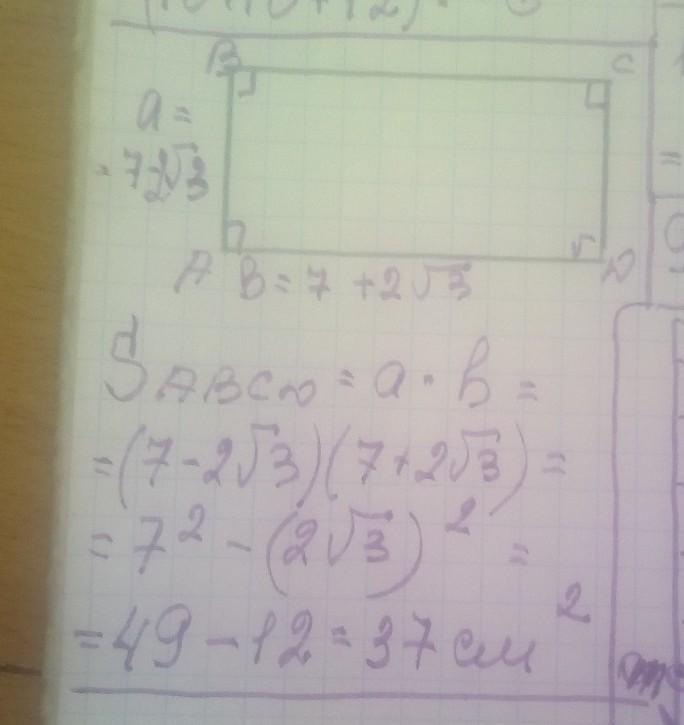 B C
a =
= 7-2√3
A B = 7 + 2√3 D
S ABCD = a · b =
= (7 - 2√3)(7 + 2√3) =
= 7² - (2√3)² =
= 49 - 12 = 37 см²